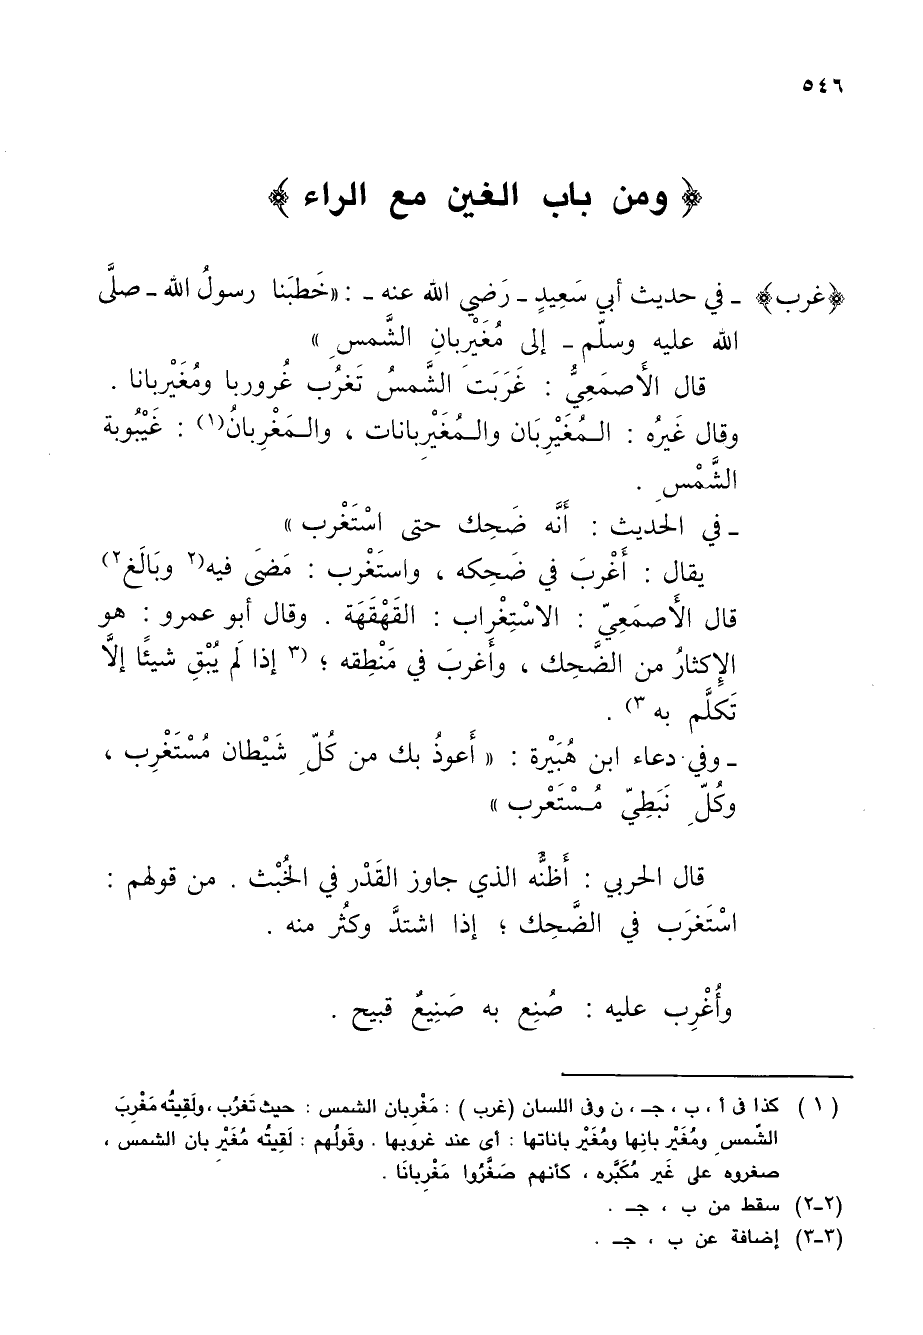 ٥٤٦
﴿ ومن باب الغين مع الراء ﴾
﴿غرب﴾ ـ في حديث أبي سَعِيدٍ ـ رَضي الله عنه ـ : «خَطَبَنا رسولُ الله ـ صلَّى
الله عليه وسلّم ـ إلى مُغَيْرِبانِ الشَّمسِ »
قال الأَصمَعِيُّ : غَرَبَت الشَّمسُ تَغرُب غُروربا ومُغَيْرِبانا .
وقال غَيرُه : المُغَيْرِبَان والمُغَيْرِبانات ، والمَغْرِبانُ(١) : غَيْبُوبة
الشَّمْسِ .
ـ في الحديث : أَنَّه ضَحِك حتى اسْتَغْرب »
يقال : أَغْرَبَ في ضَحِكه ، واستَغْرب : مَضَى فيه(٢ وبَالَغ٢)
قال الأَصمَعِيّ : الاسْتِغْراب : القَهْقَهَة . وقال أبو عمرو : هو
الإِكثارُ من الضَّحِك ، وأَغربَ في مَنْطِقه ؛ (٣ إذا لَم يُبْقِ شيئًا إلاَّ
تَكلَّم به ٣) .
ـ وفي دعاء ابن هُبَيْرة : « أَعوذُ بك من كُلِّ شَيْطان مُسْتَغْرِب ،
وكُلِّ نَبَطِيّ مُسْتَعْرب »
قال الحربي : أَظنُّه الذي جاوز القَدْر في الخُبْث . من قولهم :
اسْتَغرَب في الضَّحِك ؛ إذا اشتدَّ وكثُر منه .
وأُغْرِب عليه : صُنِع به صَنِيعٌ قبيح .
(١) كذا فى أ ، ب ، جـ ، ن وفى اللسان (غرب) : مَغْرِبان الشمس : حيث تَغرُب ، ولَقِيتُه مَغْرِبَ
الشَّمسِ ومُغَيْرِ بانِها ومُغَيْرِ باناتها : أى عند غروبها . وقولُهم : لَقِيتُه مُغَيْرِ بان الشمس ،
صغروه على غَير مُكَبَّره ، كأنهم صَغَّرُوا مَغْرِبانَا .
(٢ـ٢) سقط من ب ، جـ .
(٣ـ٣) إضافة عن ب ، جـ .